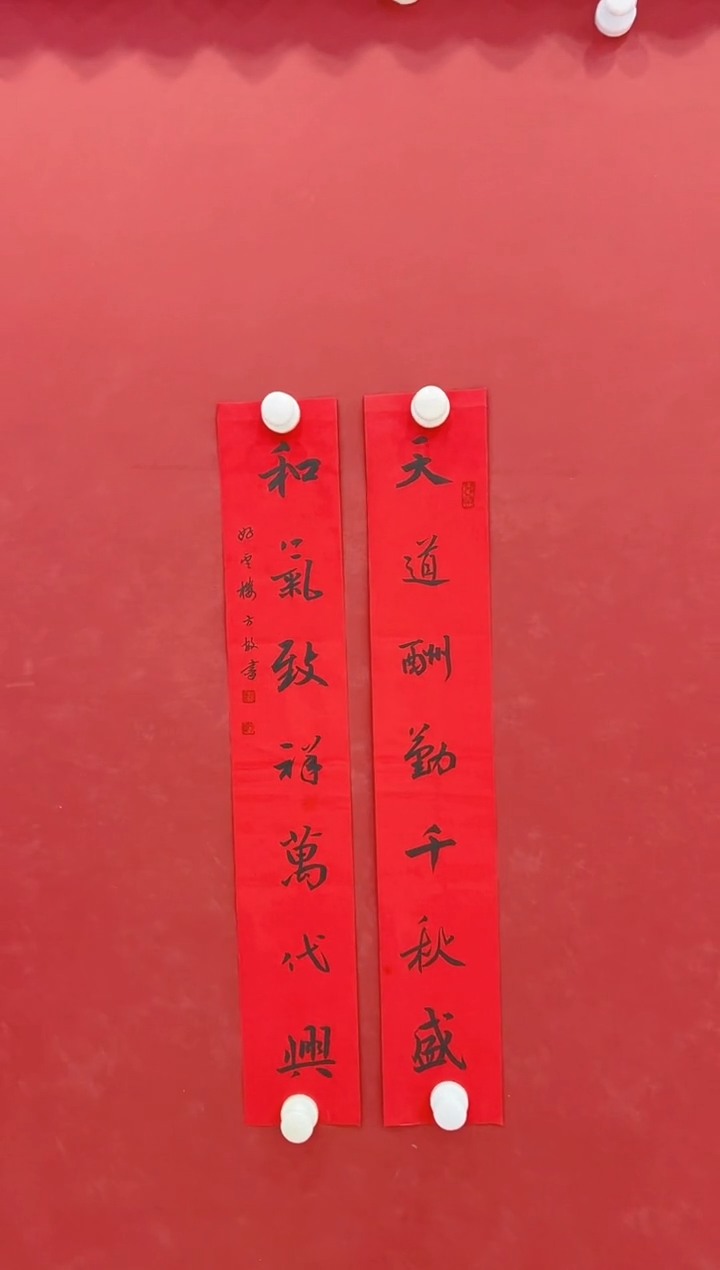 天道酬勤千秋盛
和氣致祥萬代興
好雲樓方敏書